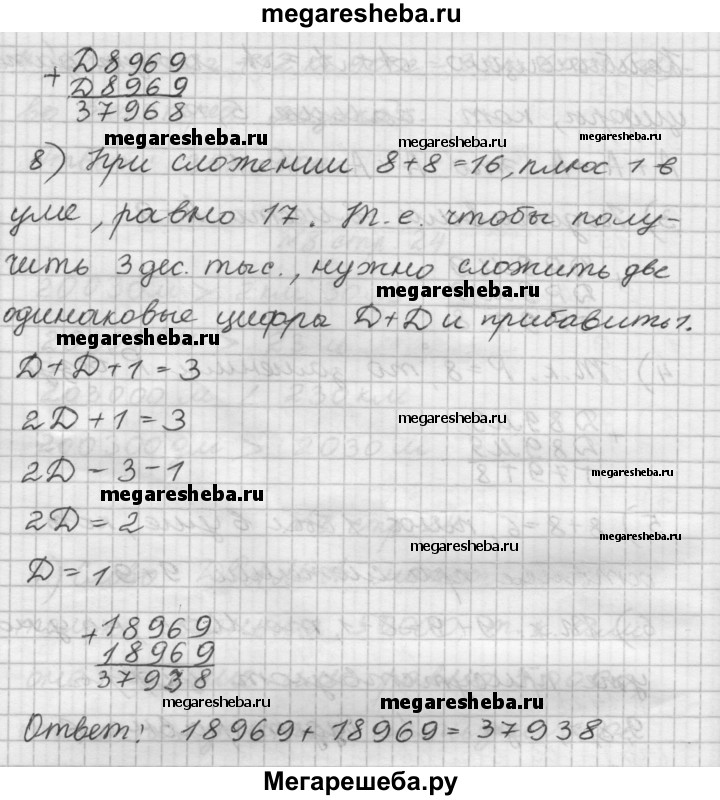 megaresheba.ru
+ Д8969
Д8969
37968
megaresheba.ru
megaresheba.ru
8) При сложении 8+8=16, плюс 1 в
уме, равно 17. Т.е. чтобы полу-
чить 3 дес. тыс., нужно сложить две
megaresheba.ru
одинаковые цифры Д+Д и прибавить 1.
megaresheba.ru
Д+Д+1=3
2Д+1=3
megaresheba.ru
2Д-3-1
megaresheba.ru
megaresheba.ru
2Д=2
megaresheba.ru
megaresheba.ru
Д=1
+18969
18969
37938
megaresheba.ru
megaresheba.ru
Ответ: 18969+18969=37938
Мегарешеба.ру